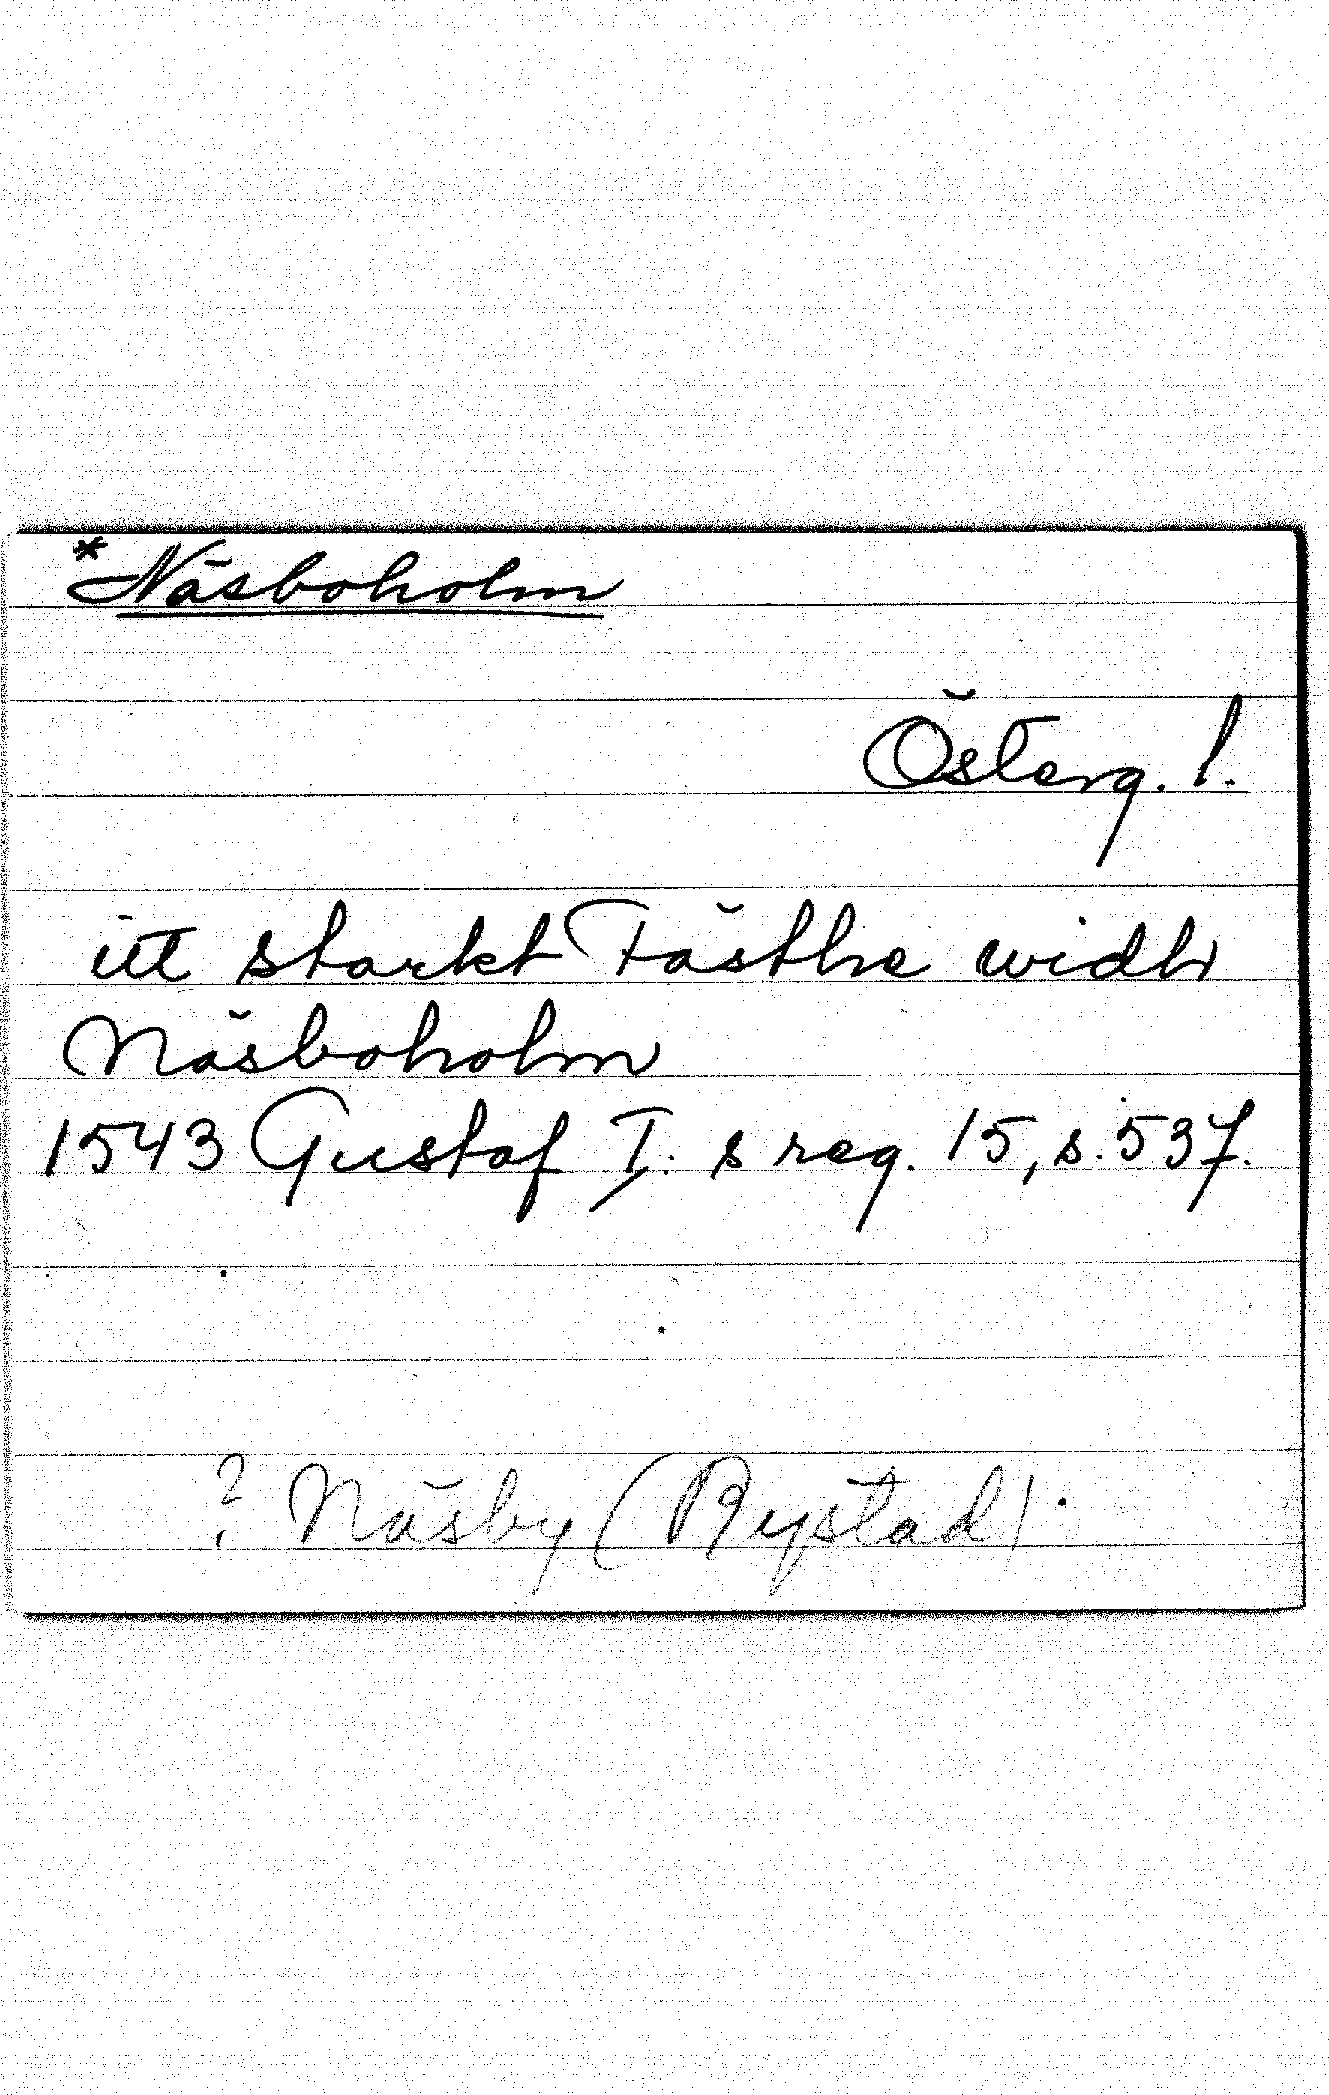 *Näsboholm
Österg. l.
itt starkt Fästhe widh
Näsboholm
1543 Gustaf I:s reg. 15, s. 537.
? Näsby (Rystad).